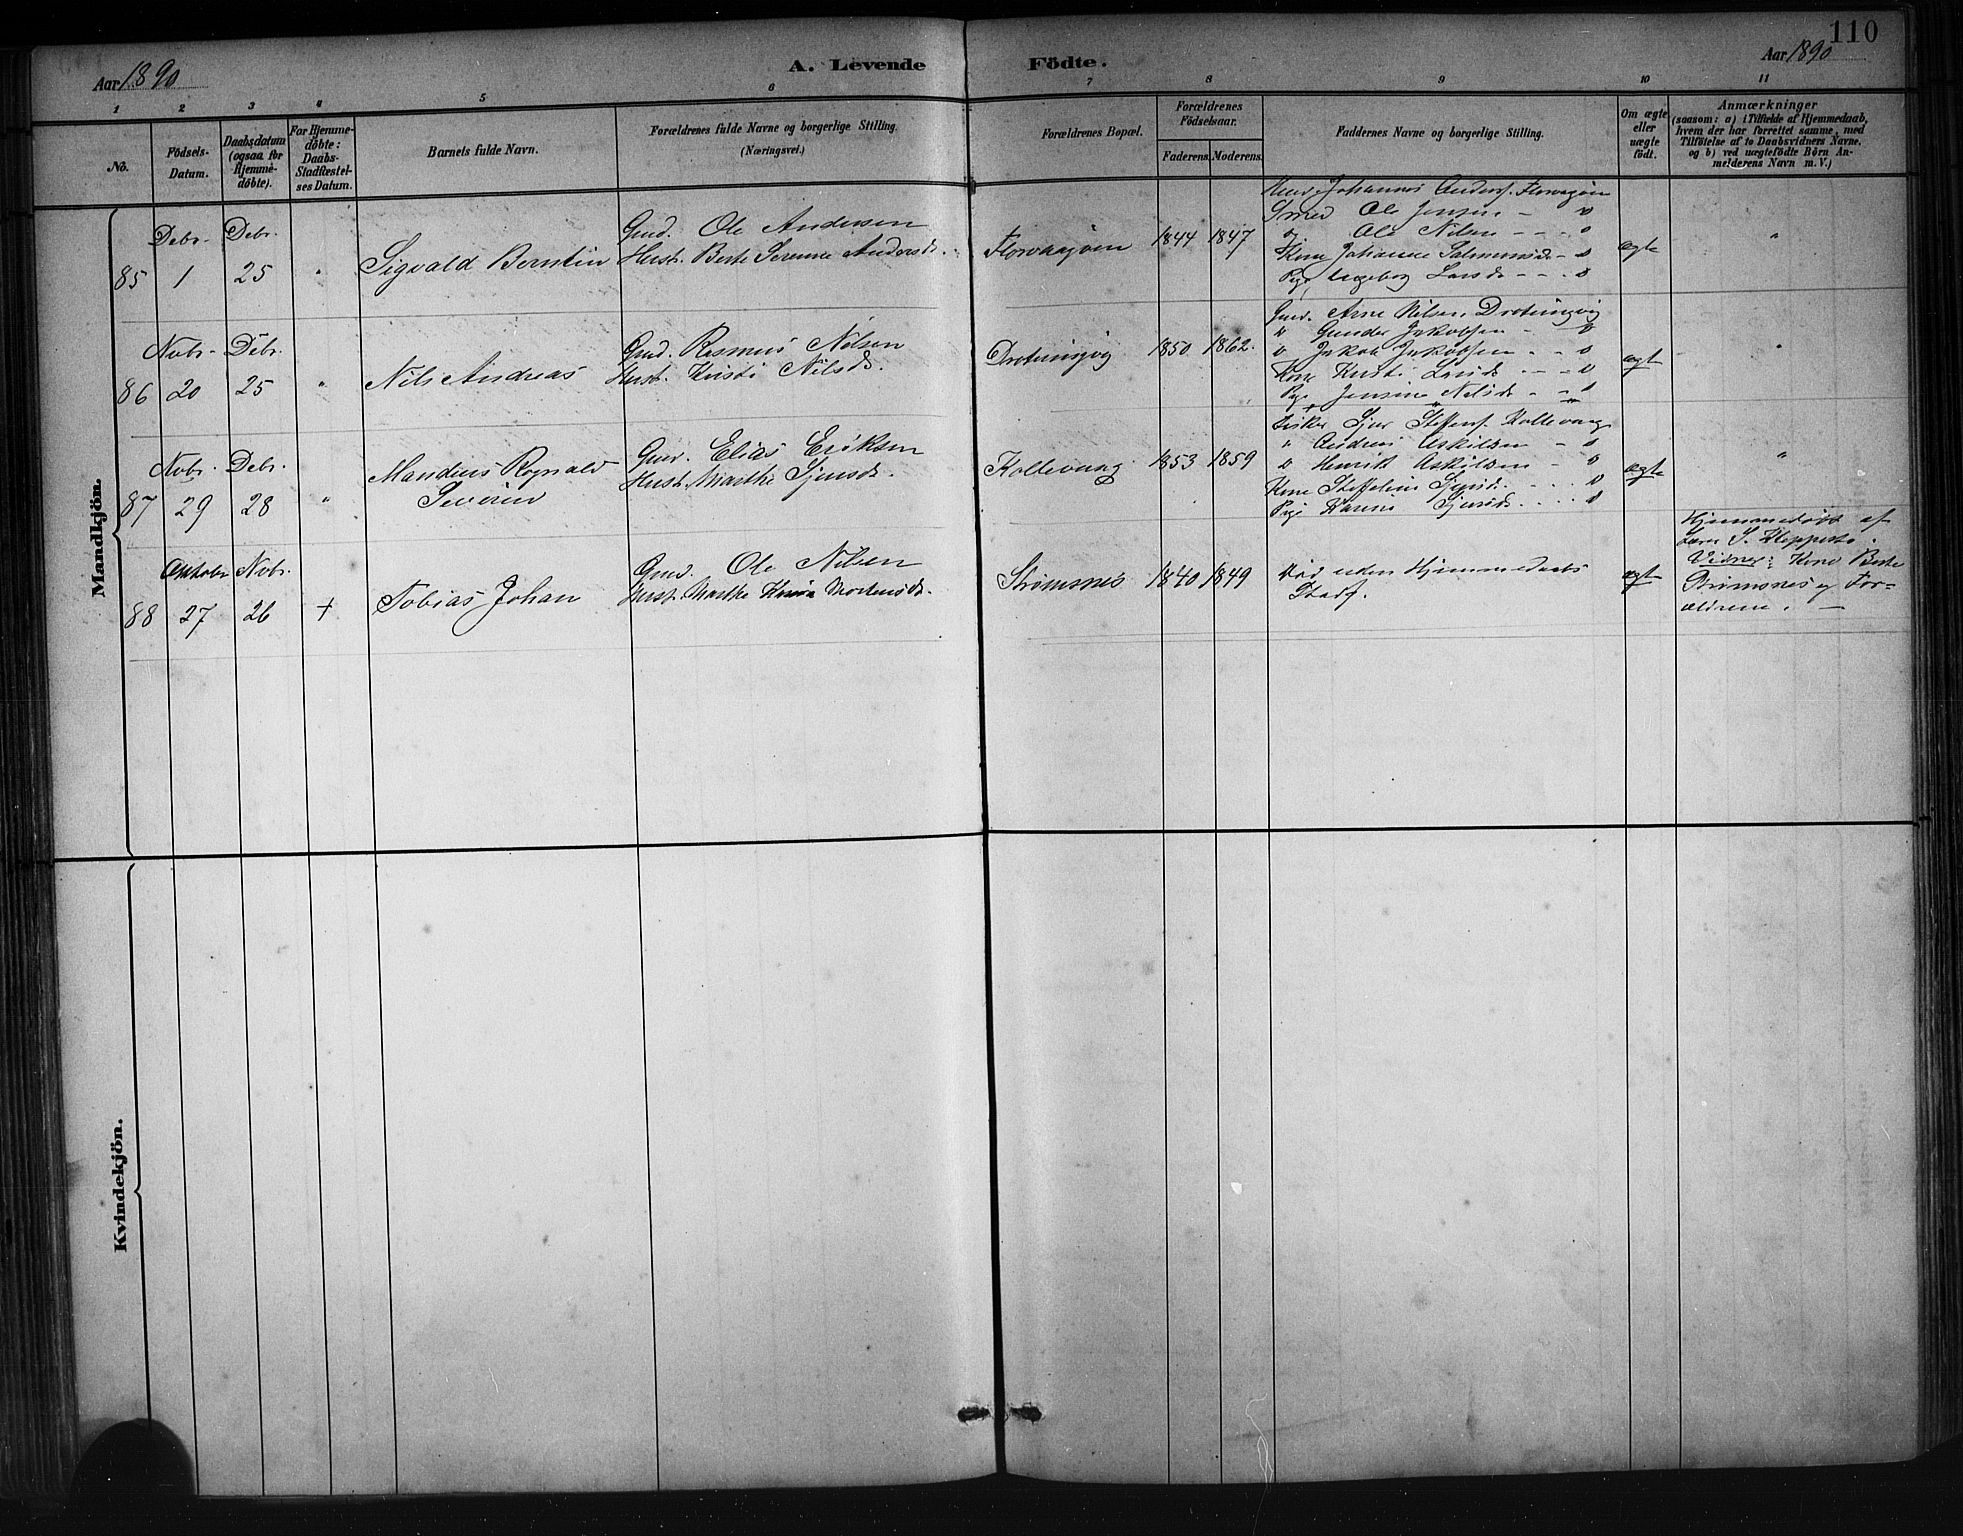 110
Aar 1890
A. Levende Födte.
Aar 1890
1 2 3 4 5 6 7 8 9 10 11
No.
Födsels-
Datum.
Daabsdatum
(ogsaa for
Hjemme-
döbte).
For Hjemme-
döbte:
Daabs-
Stadfæstel-
ses Datum.
Barnets fulde Navn.
Forældrenes fulde Navne og borgerlige Stilling.
(Næringsvei.)
Forældrenes Bopæl.
Forældrenes
Födselsaar.
Faderens. Moderens.
Faddernes Navne og borgerlige Stilling.
Om ægte
eller
uægte
födt.
Anmærkninger
(saasom: a) i Tilfælde af Hjemmedaab,
hvem der har forrettet samme, med
Tilföielse af to Daabsvidners Navne,
og b) ved uægtefödte Börn An-
melderens Navn m. V.)
Mandkjön.
85
Debr.
1
Debr.
25
"
Sigvald Berntin
Gmd. Ole Andersen
Hust. Berte Serenne Andersd.
Florvaagøen
1844 1847
Johannes Anders. Florvagøen
Smed Ole Jensen — "
Ole Nilsen - - - "
Kone Johanne Salmonsd. - "
Pige Ingeborg Larsd. - - "
ægte
"
86
Nvbr.
20
Debr.
25
"
Nils Andreas
Gmd. Rasmus Nilsen
Hust. Kristi Nilsd.
Drotningvig
1850 1862.
Gmd. Arne Nilsen, Drotningvig
" Gunder Jakobsen - "
" Jakob Jakobsen - - "
Kone Kristi Larsd. - - - "
Pige Jensine Nilsd. - - "
ægte
"
87
Nvbr.
29
Debr.
28
"
Mandius Rognald
Severin
Gmd. Elias Eriksen
Hust. Marthe Sjursd.
Kollevaag
1853 1859
Fisker Sjur Steffens. Kollevaag
" Andreas Askildsen - "
" Henrik Askildsen - "
Kone Steffeline Sjursd. - - - "
Pige Karine Sjursd. - - - "
ægte
"
88
Oktober
27
Nvbr.
26
+
Tobias Johan
Gmd. Ole Nilsen
Hust. Marthe Mortensd.
Strømsnes
1840 1849
Død uden Hjemmedaabs
Stadf.
ægte
Hjemmedøbt af
Lærer S. Kleppestø.
Vidner: Kone Berte
Strømsnes og For-
ældrene. —
Kvindekjön.